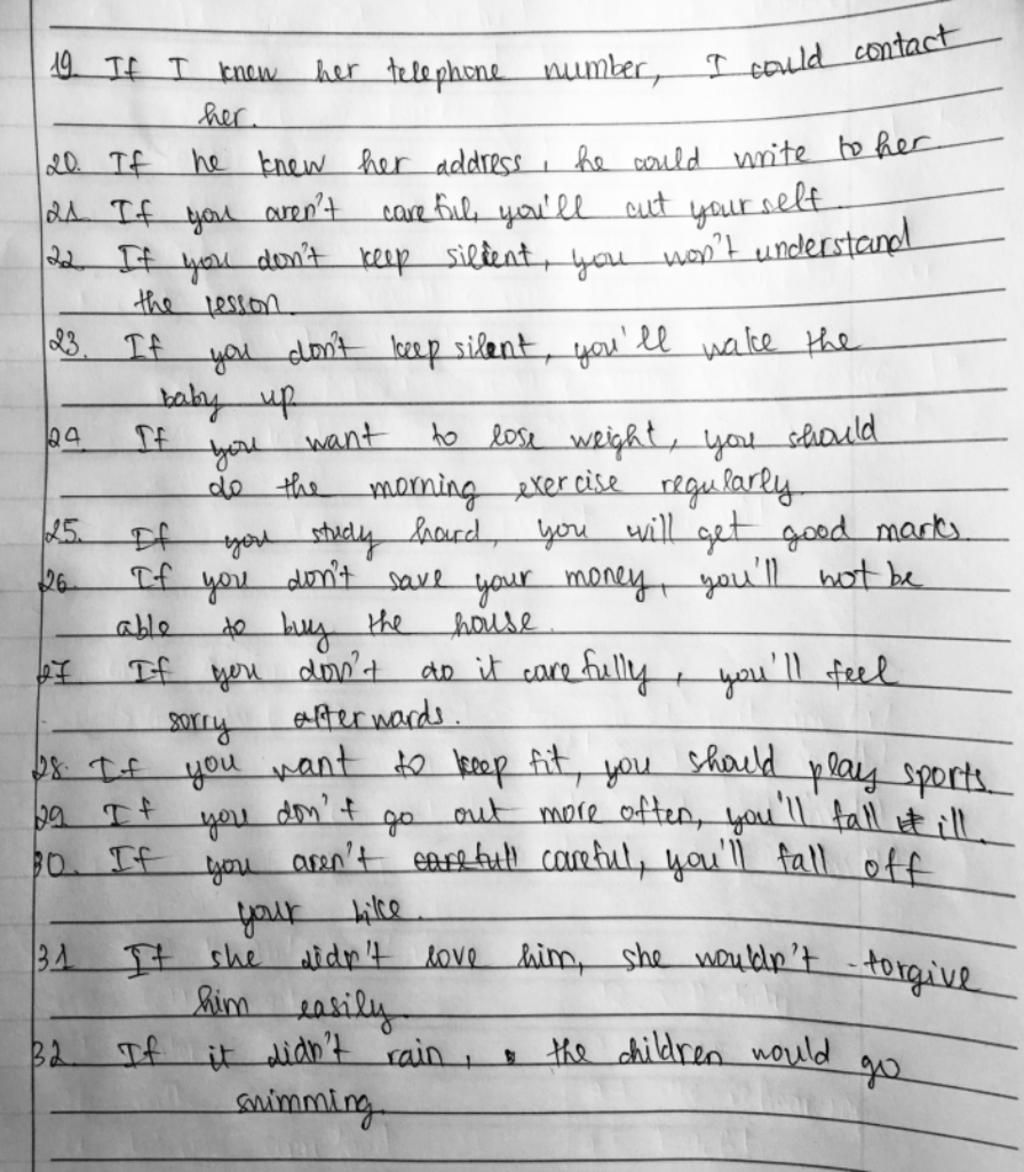 19. If I knew her telephone number, I could contact
her.
20. If he knew her address, he could write to her
21. If you aren't careful, you'll cut yourself.
22. If you don't keep silent, you won't understand
the lesson.
23. If you don't keep silent, you'll wake the
baby up
24. If you want to lose weight, you should
do the morning exercise regularly
25. If you study hard, you will get good marks.
26. If you don't save your money, you'll not be
able to buy the house.
27. If you don't do it carefully, you'll feel
sorry afterwards.
28. If you want to keep fit, you should play sports.
29. If you don't go out more often, you'll fall ill.
30. If you aren't carefull careful, you'll fall off
your bike.
31 If she didn't love him, she wouldn't forgive
him easily.
32. If it didn't rain, the children would go
swimming.